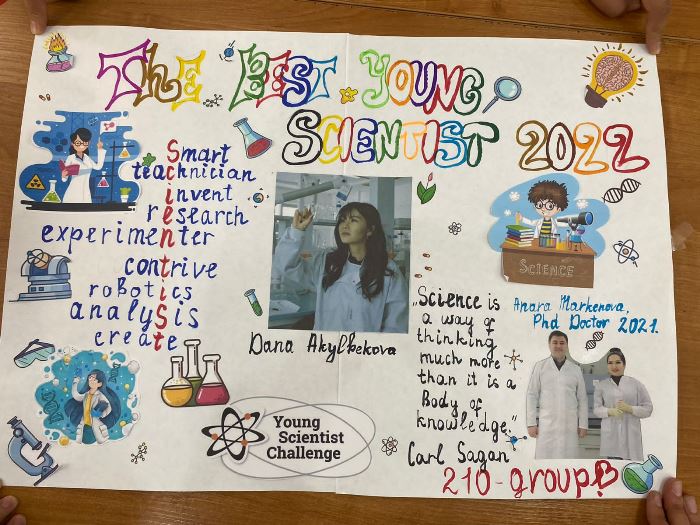 The Best Young
Scientist 2022
Smart
teachnician
invent
research
experimenter
contrive
robotics
analysis
create
Dana Akylbekova
„Science is
a way of
thinking
much more
than it is a
Body of
knowledge."
Carl Sagan
SCIENCE
Anara Markenova,
Phd Doctor 2021.
Young
Scientist
Challenge
210-group!